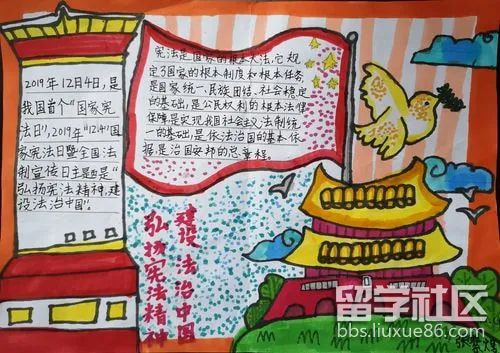 2019年12月4日,是
我国首个"国家宪
法日",2019年"12·4"国
家宪法日暨全国法
制宣传日主题是"
弘扬宪法精神,建
设法治中国"。
宪法是国家的根本大法,它规
定了国家的根本制度和根本任务,
是国家统一、民族团结、社会稳定
的基础,是公民权利的根本法律
保障,是实现我国社会主义法制统
一的基础,是依法治国的基本依
据,是治国安邦的总章程。
建设法治中国
弘扬宪法精神
留学社区
bbs.liuxue86.com